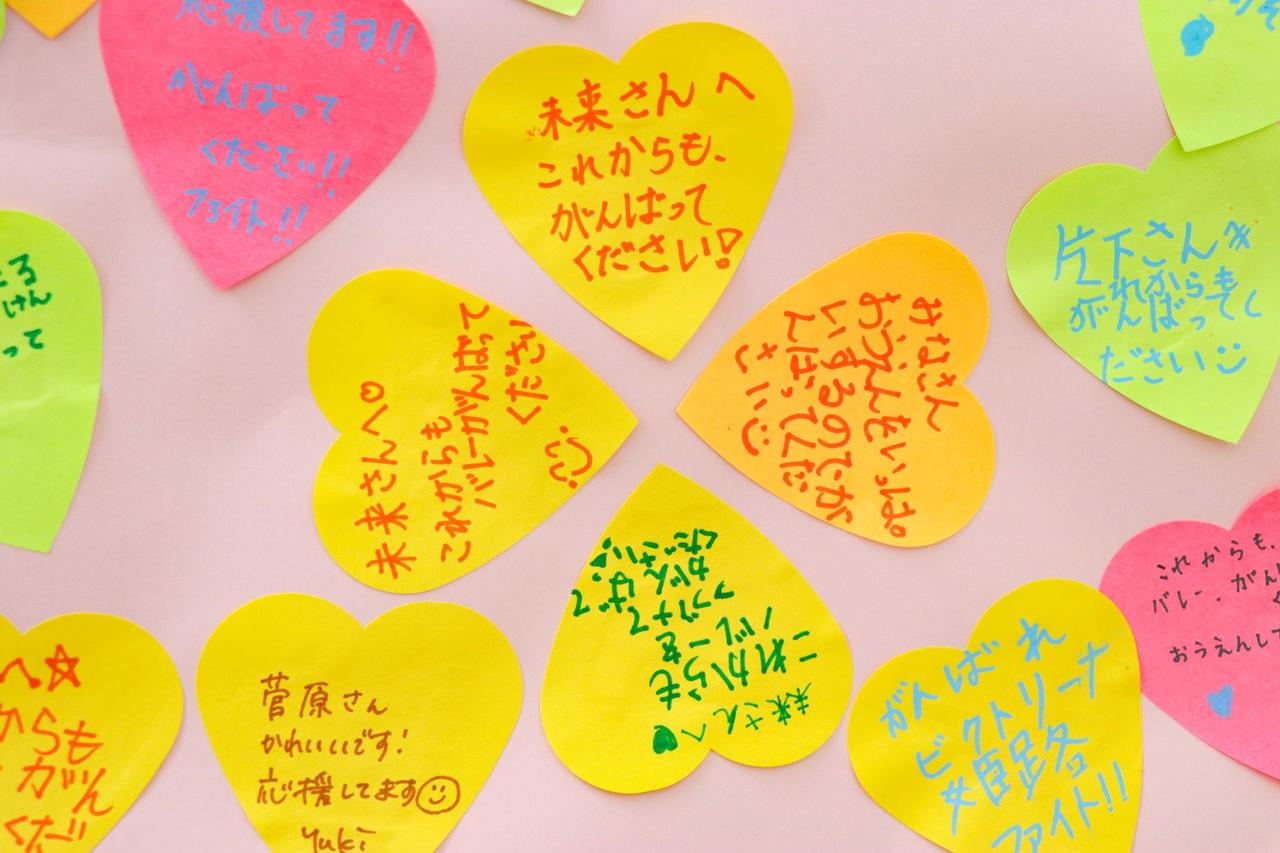 応援してます!!
がんばって
ください!!
ファイト!!
未来さんへ
これからも、
がんばって
ください!
片下さんへ
これからも
がんばってく
ださい
まる
けん
って
未来さんへ♡
これからも
バレーがんばって
ください
みなさん
おうえんをいっぱ
いするのでが
んばってくだ
さい
未来さんへ♥
これからも
バレーを
つづけて
がんばって
ください
これからも、
バレー.がん
おうえんして
へ☆
からも
がん
くだ
菅原さん
かわいいです!
応援してます
Yuki
がんばれ
ビクトリーナ
姫路
ファイト!!